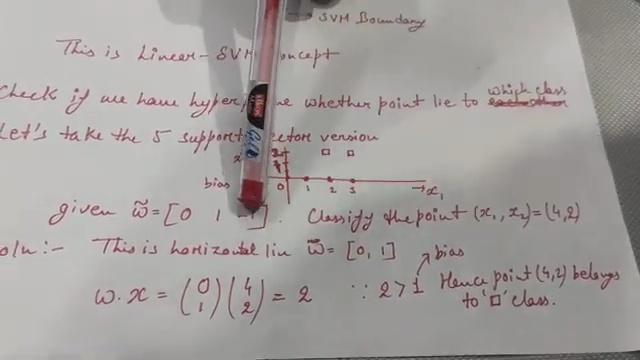 SVM Boundary
This is Linear-SVM concept
Check if we have hyper, whether point lie to which class
Let's take the 5 support vector version
bias 0 1 2 3 x₁
given w̃ = [0 1 -1]. Classify the point (x₁, x₂) = (4,2)
Soln:- This is horizontal lin w̃ = [0, 1] bias
w.x = (0 1)(4 2) = 2 ∵ 2 > 1 Hence point (4,2) belongs
to '□' class.